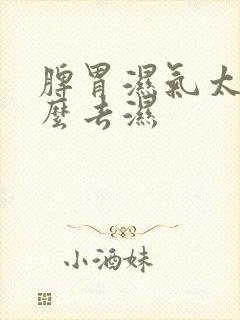 脾胃濕氣太
麼去濕
小酒妹